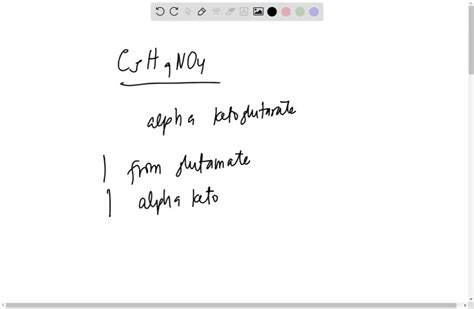 C5H9NO4
alpha ketoglutarate
from glutamate
alpha keto